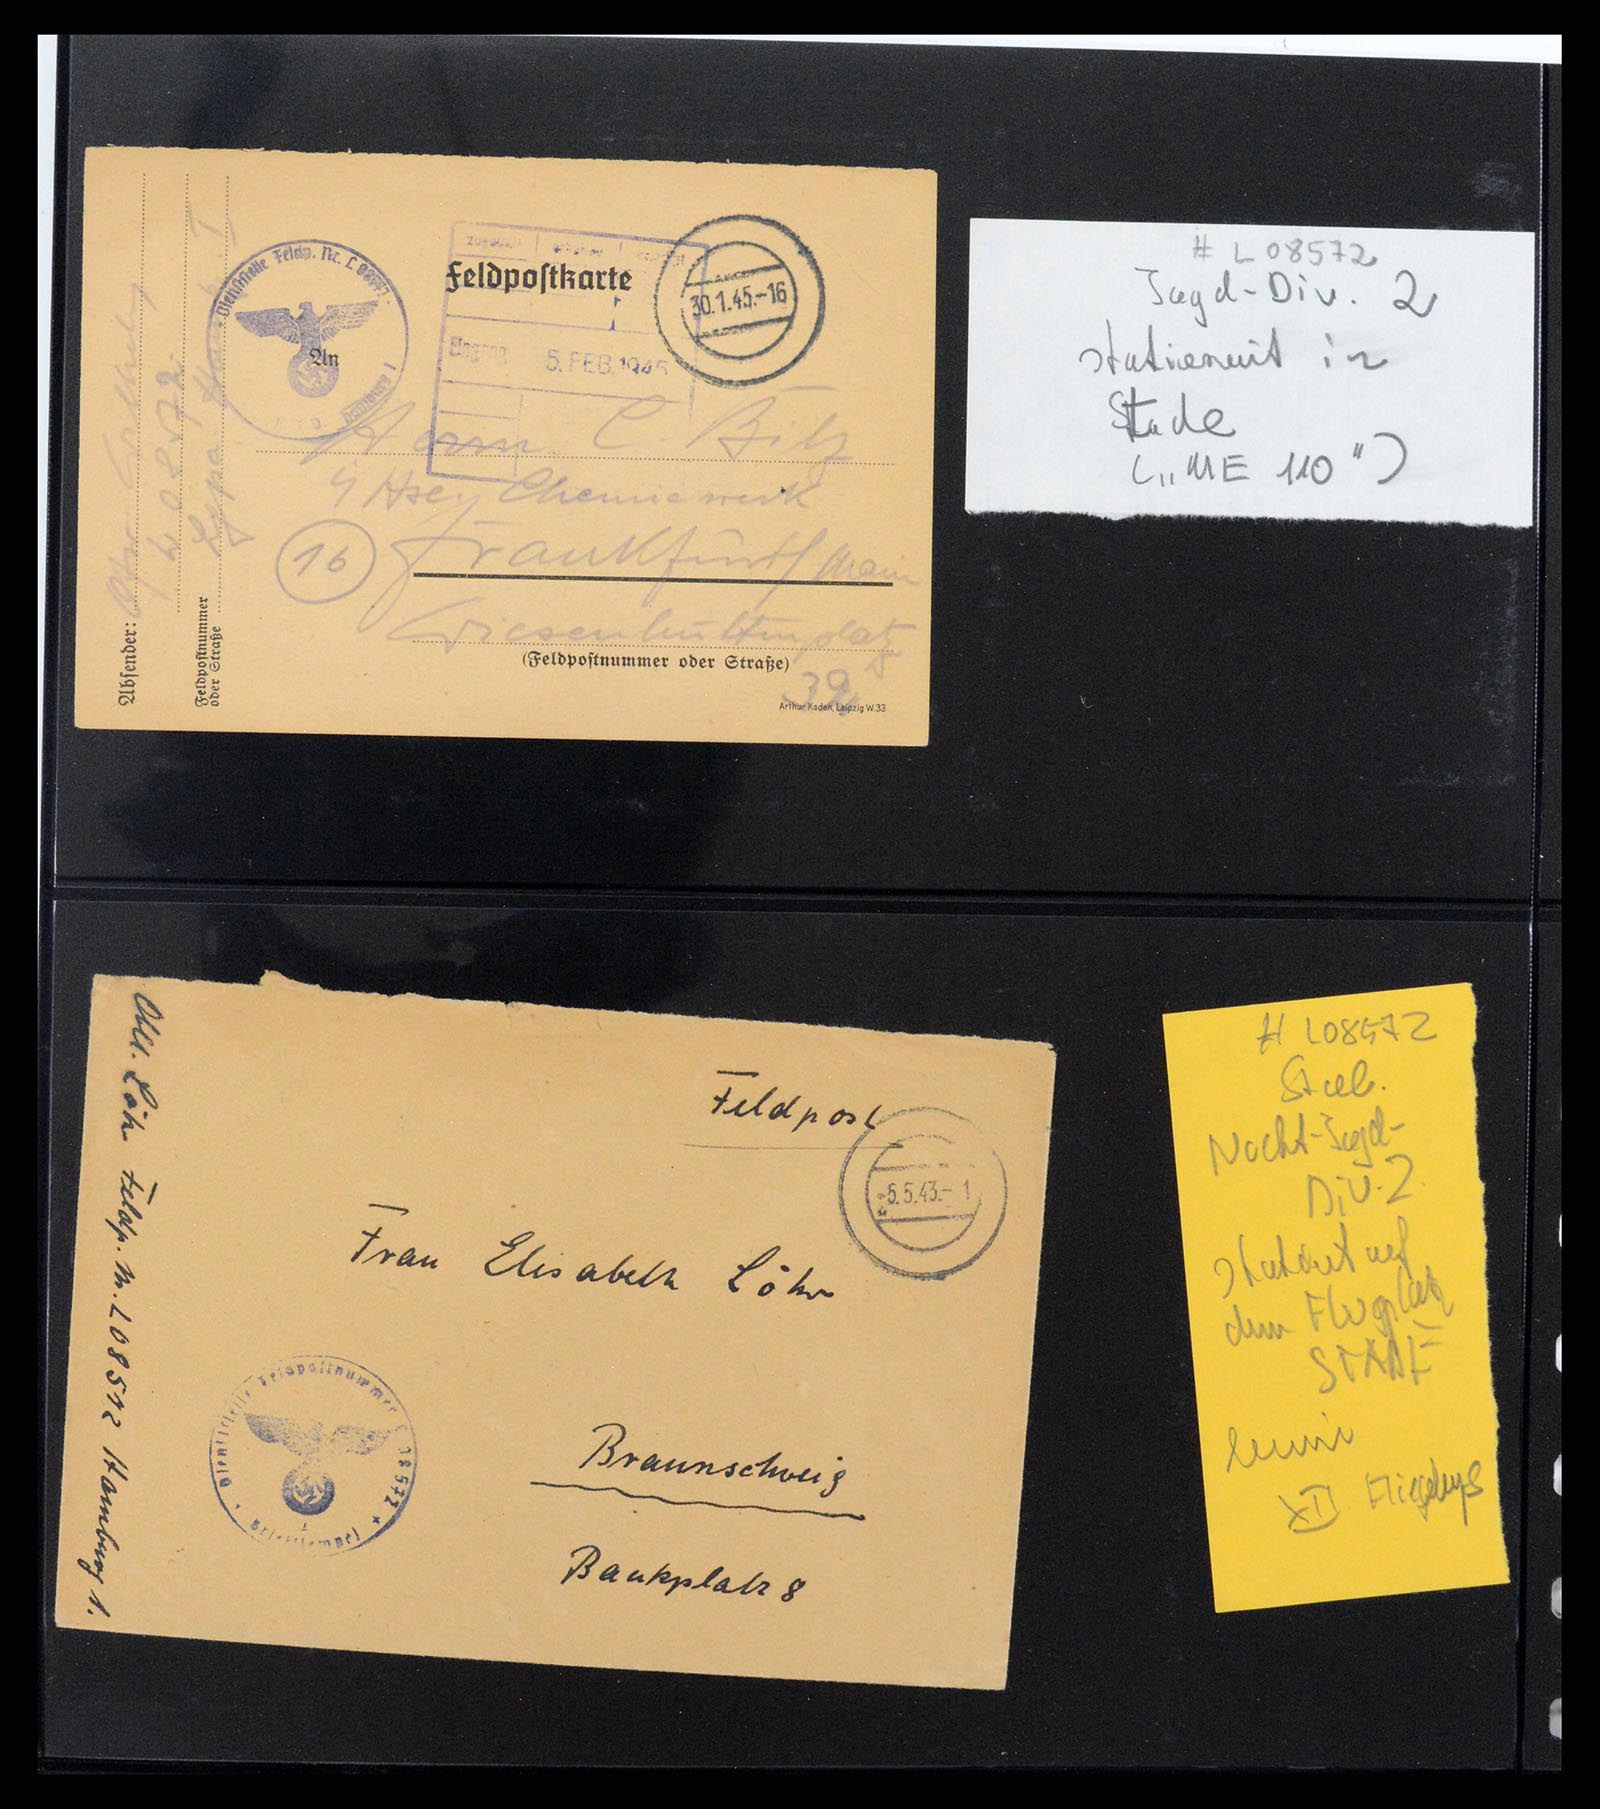 Feldpostkarte
30.1.45.-16
Dienststelle Feldp. Nr. L
An
Eingang 5. FEB. 1945
Herrn C. Bilz
Chemiewerk
(16) Frankfurt/Main
Wiesenhüttenplatz
39
(Feldpostnummer oder Straße)
Arthur Kaden, Leipzig W. 33
Absender:
Feldpostnummer
oder Straße
# L 08572
Jagd-Div. 2
stationiert in
Stade
(„ME 110")
Feldpost
5.5.43.-1
Frau Elisabeth Löhr
Braunschweig
Bankplatz 8
Löhr Feldp. Nr. L 08572 Hamburg 1.
Dienststelle Feldpostnummer L 08572
Briefstempel
# L08572
Stab.
Nacht-Jagd-
Div. 2
auf
dem Flugplatz
STADE
XII